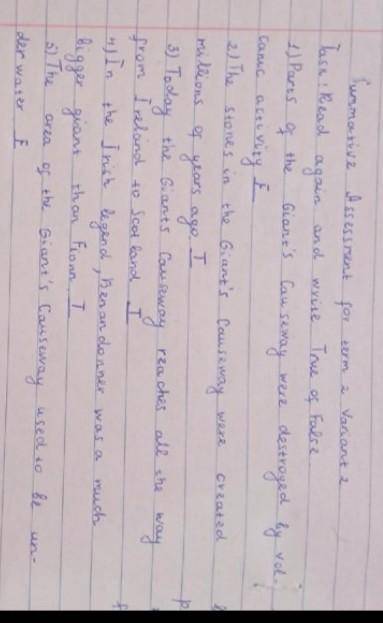 Summative Assessment for term 2 Variant 2
Task: Read again and write True of False
1) Parts of the Giant's Causeway were destroyed by vol-
canic activity F
2) The stones in the Giant's Causeway were created
millions of years ago. T
3) Today the Giants Causeway reaches all the way
from Ireland to Scotland T
4) In the Irish legend, Benandonner was a much
bigger giant than Fionn. T
5) The area of the Giant's Causeway used to be un-
der water F